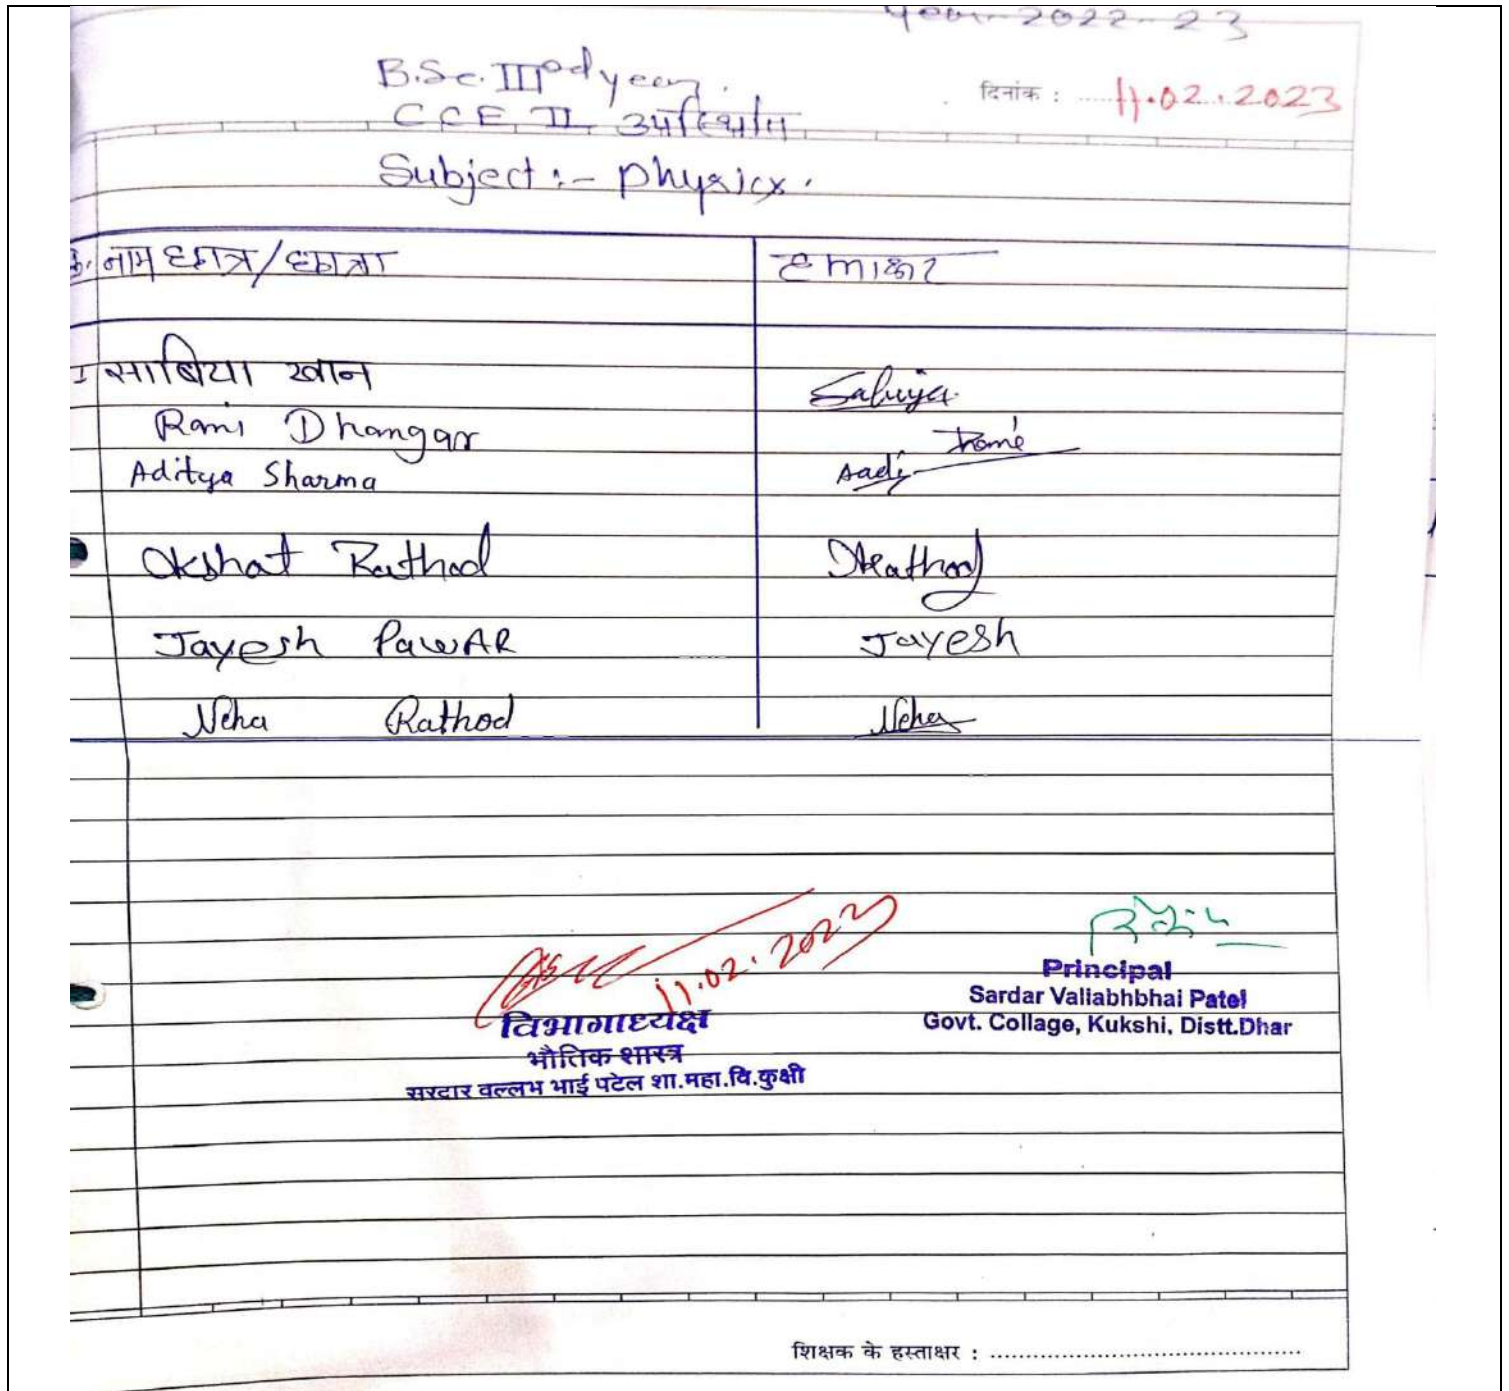 Year-2022-23
B.Sc. III rd year.
दिनांक : 11.02.2023
CCE II उपस्थिति
Subject :- physics.
क्र. नाम छात्र/छात्रा हस्ताक्षर
1 साबिया खान Sabiya
Rani Dhangar Rani
Aditya Sharma Aadi
Okshat Rathod Rathod
Jayesh PawAR Jayesh
Neha Rathod Neha
11.02.2023
विभागाध्यक्ष
भौतिक शास्त्र
सरदार वल्लभ भाई पटेल शा.महा.वि.कुक्षी
Principal
Sardar Vallabhbhai Patel
Govt. Collage, Kukshi, Distt.Dhar
शिक्षक के हस्ताक्षर :